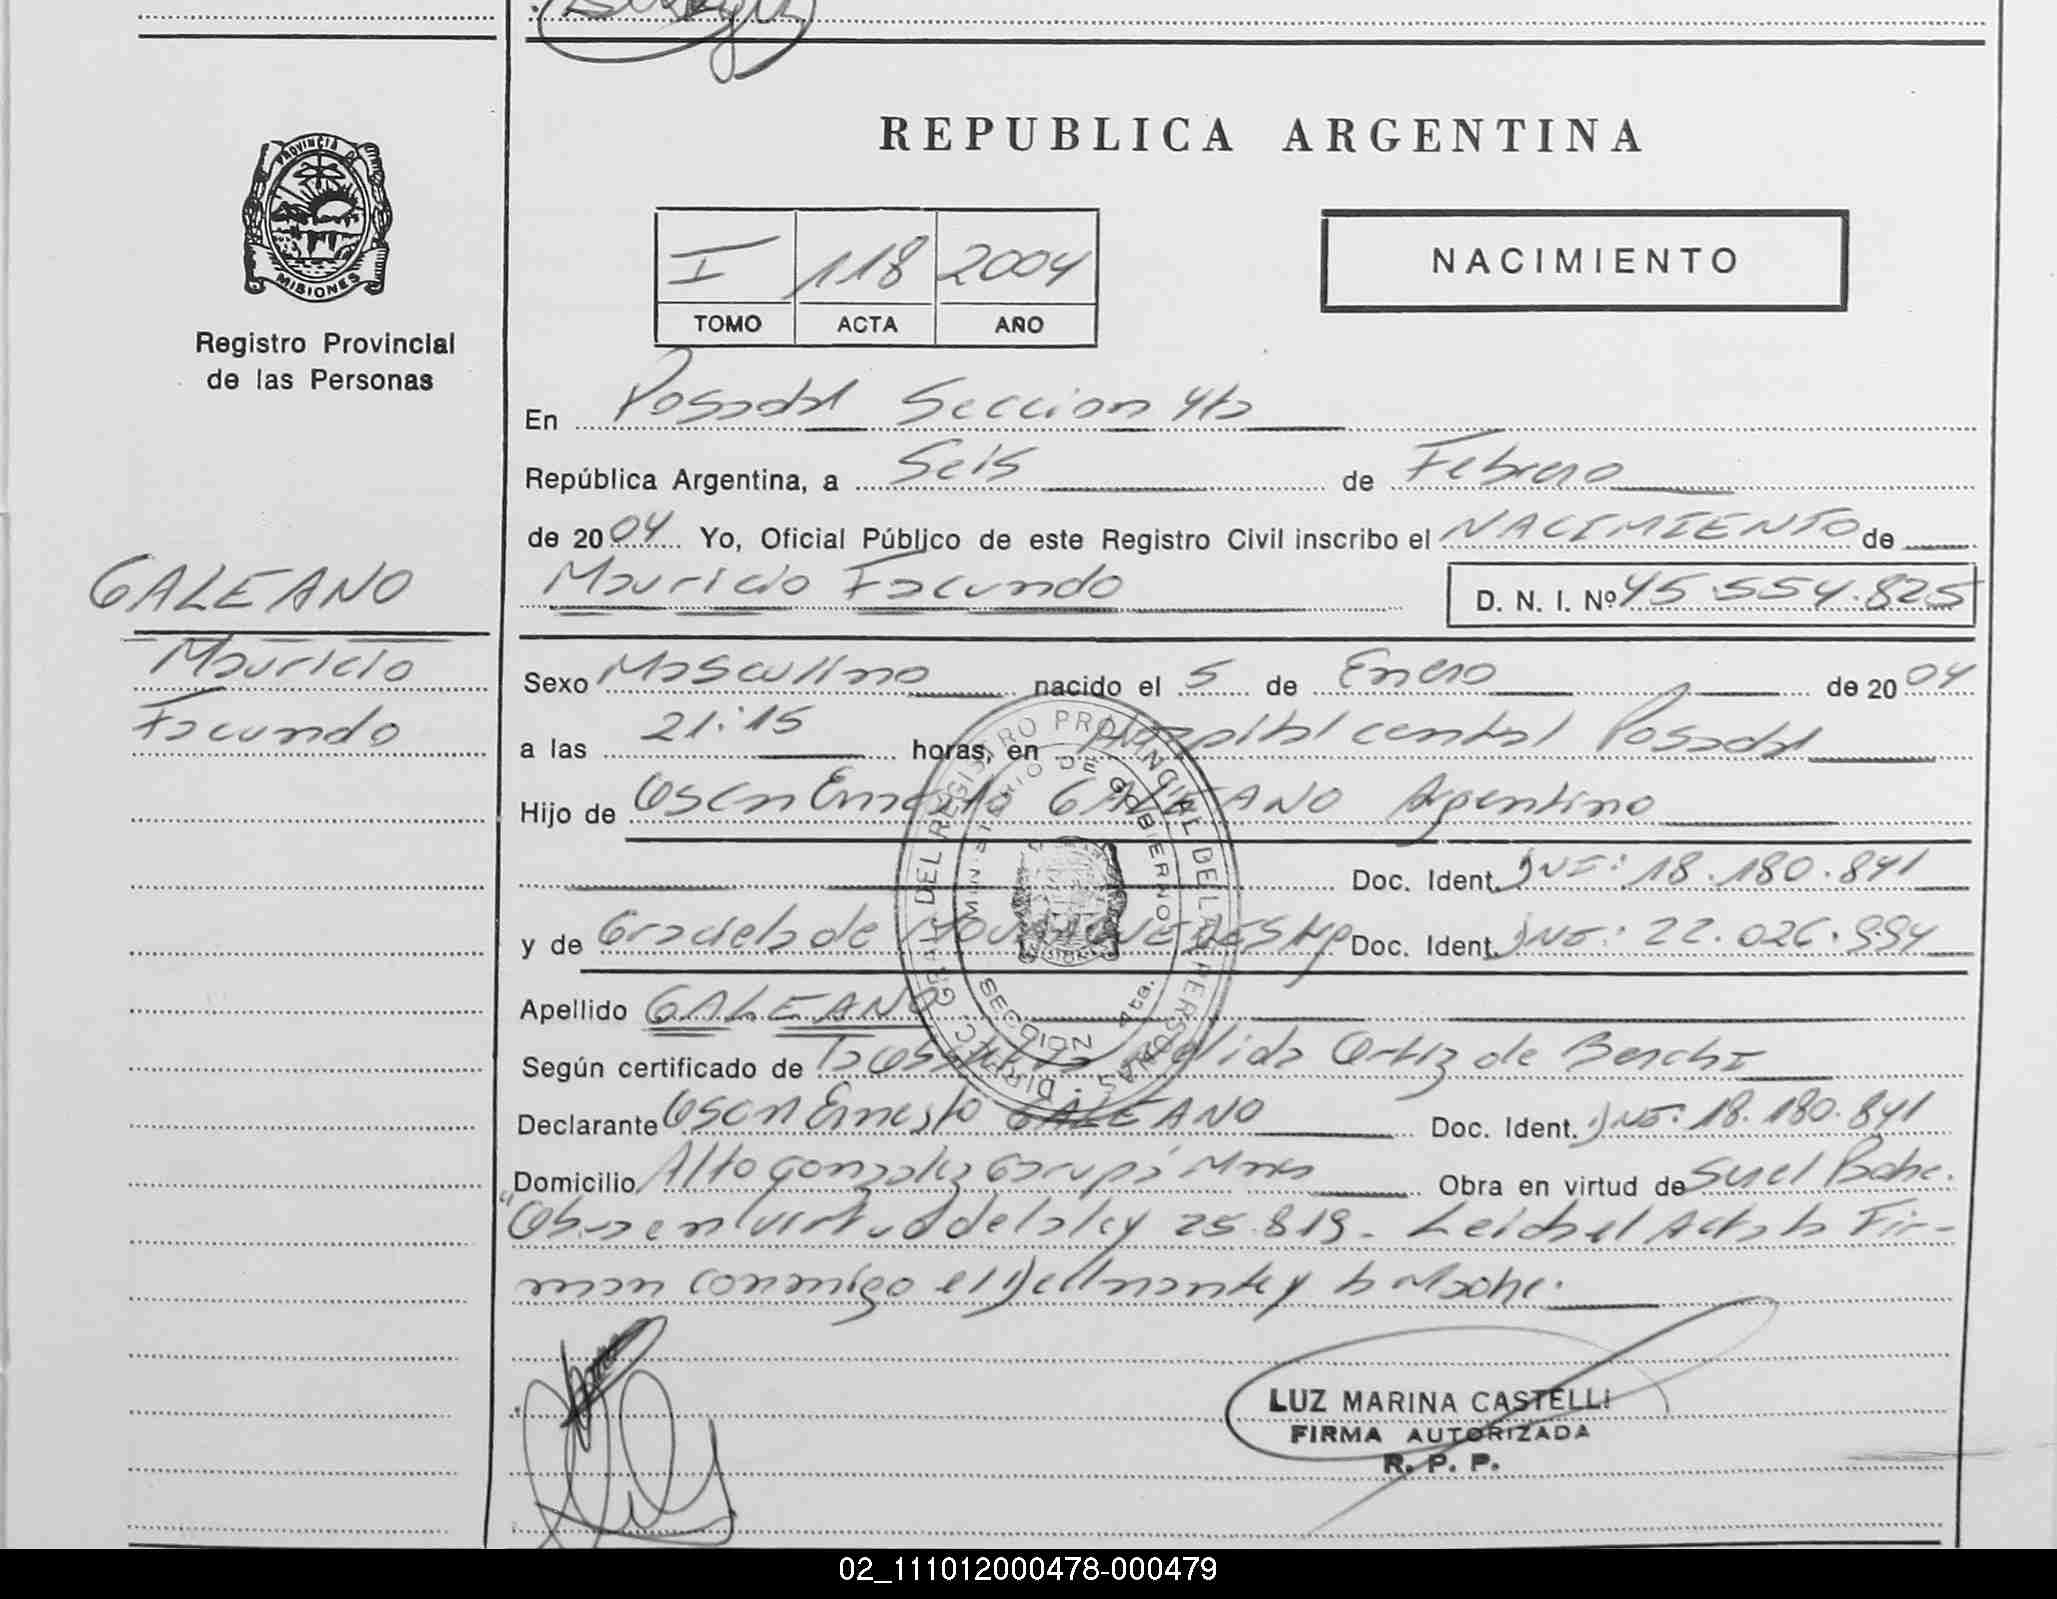 REPUBLICA ARGENTINA
PROVINCIA DE
MISIONES
Registro Provincial
de las Personas
I 118 2004
TOMO ACTA AÑO
NACIMIENTO
En Posadas Sección 4ta
República Argentina, a Seis de Febrero
de 2004 Yo, Oficial Público de este Registro Civil inscribo el NACIMIENTO de
Mauricio Facundo D. N. I. Nº 45.554.825
GALEANO
Mauricio
Facundo
Sexo Masculino nacido el 5 de Enero de 2004
a las 21:15 horas, en Hospital central Posadas
Hijo de Oscar Ernesto GALEANO Argentino
Doc. Ident. DNI: 18.180.841
y de Graciela de Doc. Ident. DNI: 22.026.994
Apellido GALEANO
Según certificado de Nelida Ortiz de
Declarante Oscar Ernesto GALEANO Doc. Ident. DNI: 18.180.841
Domicilio Alto Gonzalez Garupá Mnes Obra en virtud de
"Obra en virtud de la ley 25.819- Leida el Acta la Fir-
man conmigo el Declarante y la Madre.
DIRECC. GRAL. DEL REGISTRO PROVINCIAL DE LAS PERSONAS
MINISTERIO DE GOBIERNO
SECCION 4ta.
LUZ MARINA CASTELLI
FIRMA AUTORIZADA
R. P. P.
02_111012000478-000479